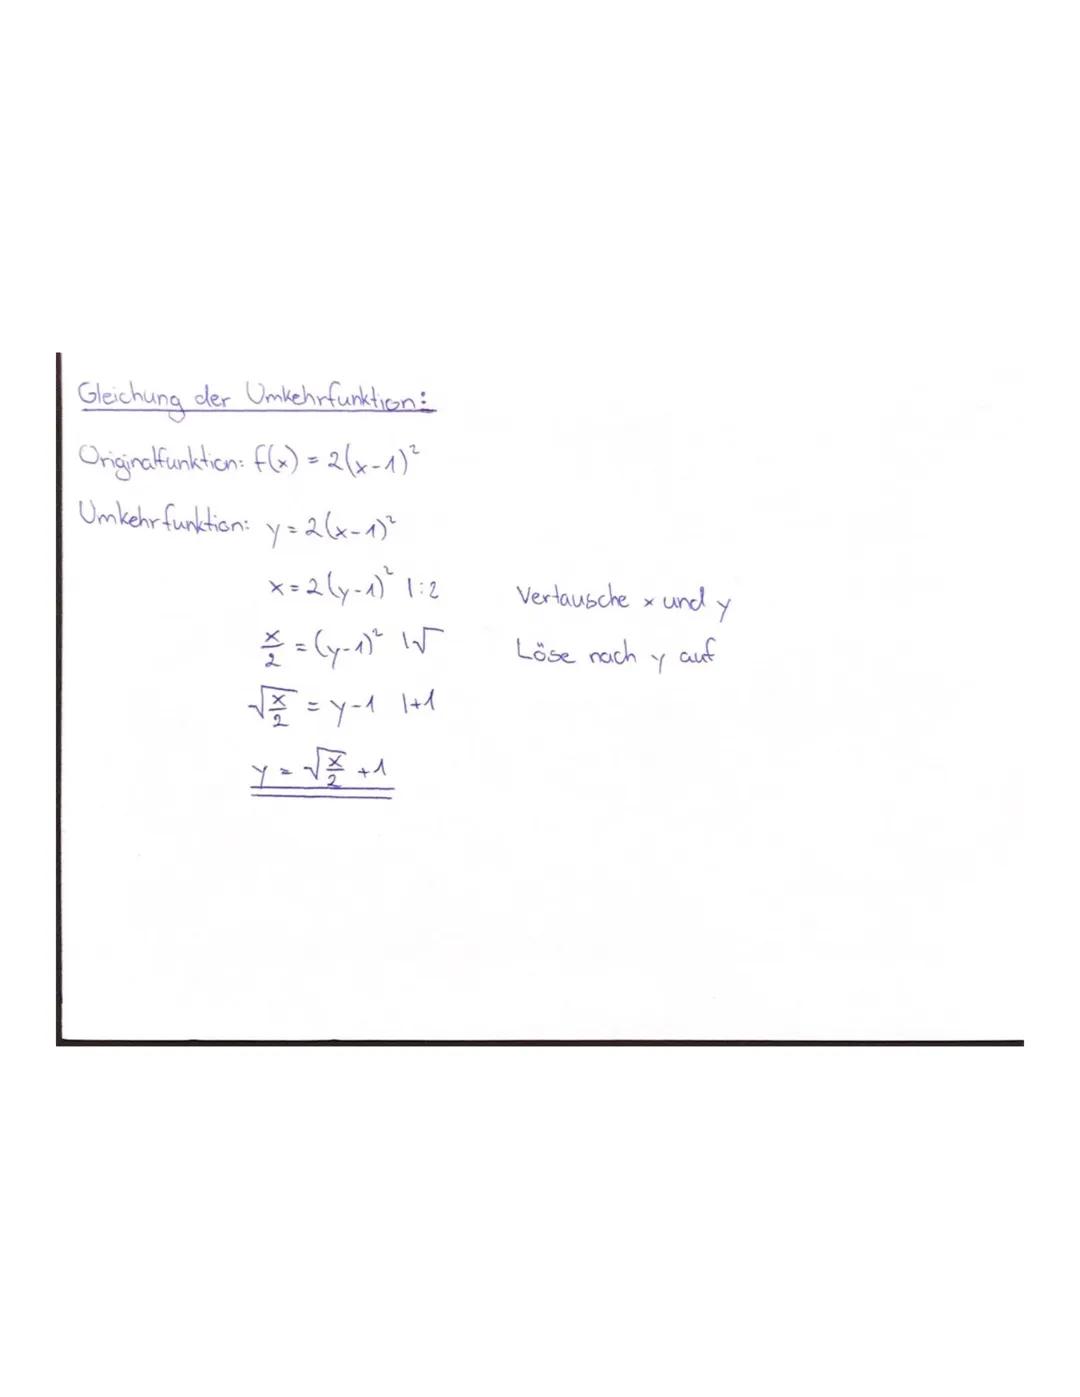 Gleichung der Umkehrfunktion:
Originalfunktion: f(x) = 2(x-1)²
Umkehrfunktion: y = 2(x-1)²
x = 2(y-1)² |:2 Vertausche x und y
x/2 = (y-1)² |√ Löse nach y auf
√(x/2) = y-1 |+1
y = √(x/2) +1